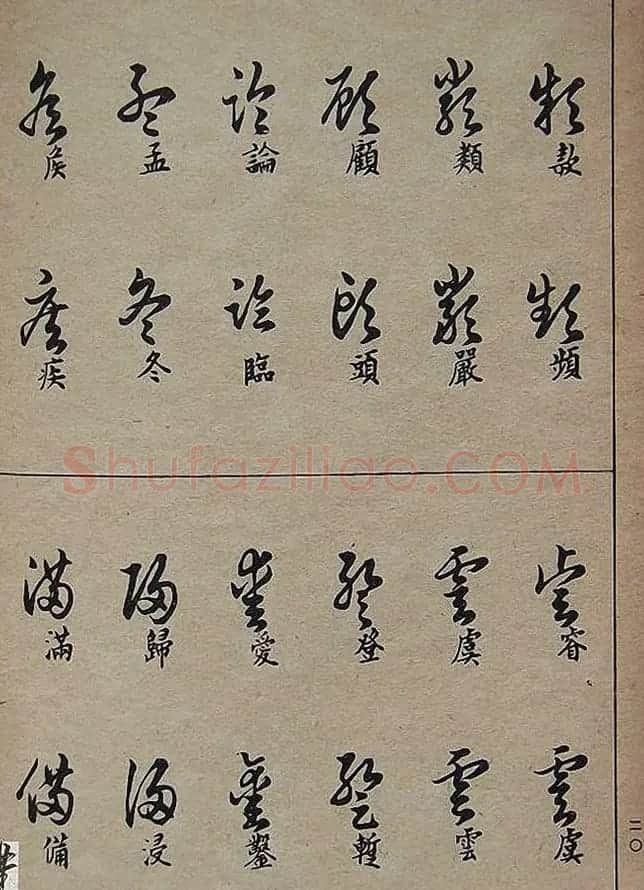 款 頻
類 嚴
顧 頭
論 臨
孟 冬
侯 疾
Shufaziliao.COM
睿 虞
虞 雲
登 暫
愛 鑿
歸 浸
滿 備
二〇